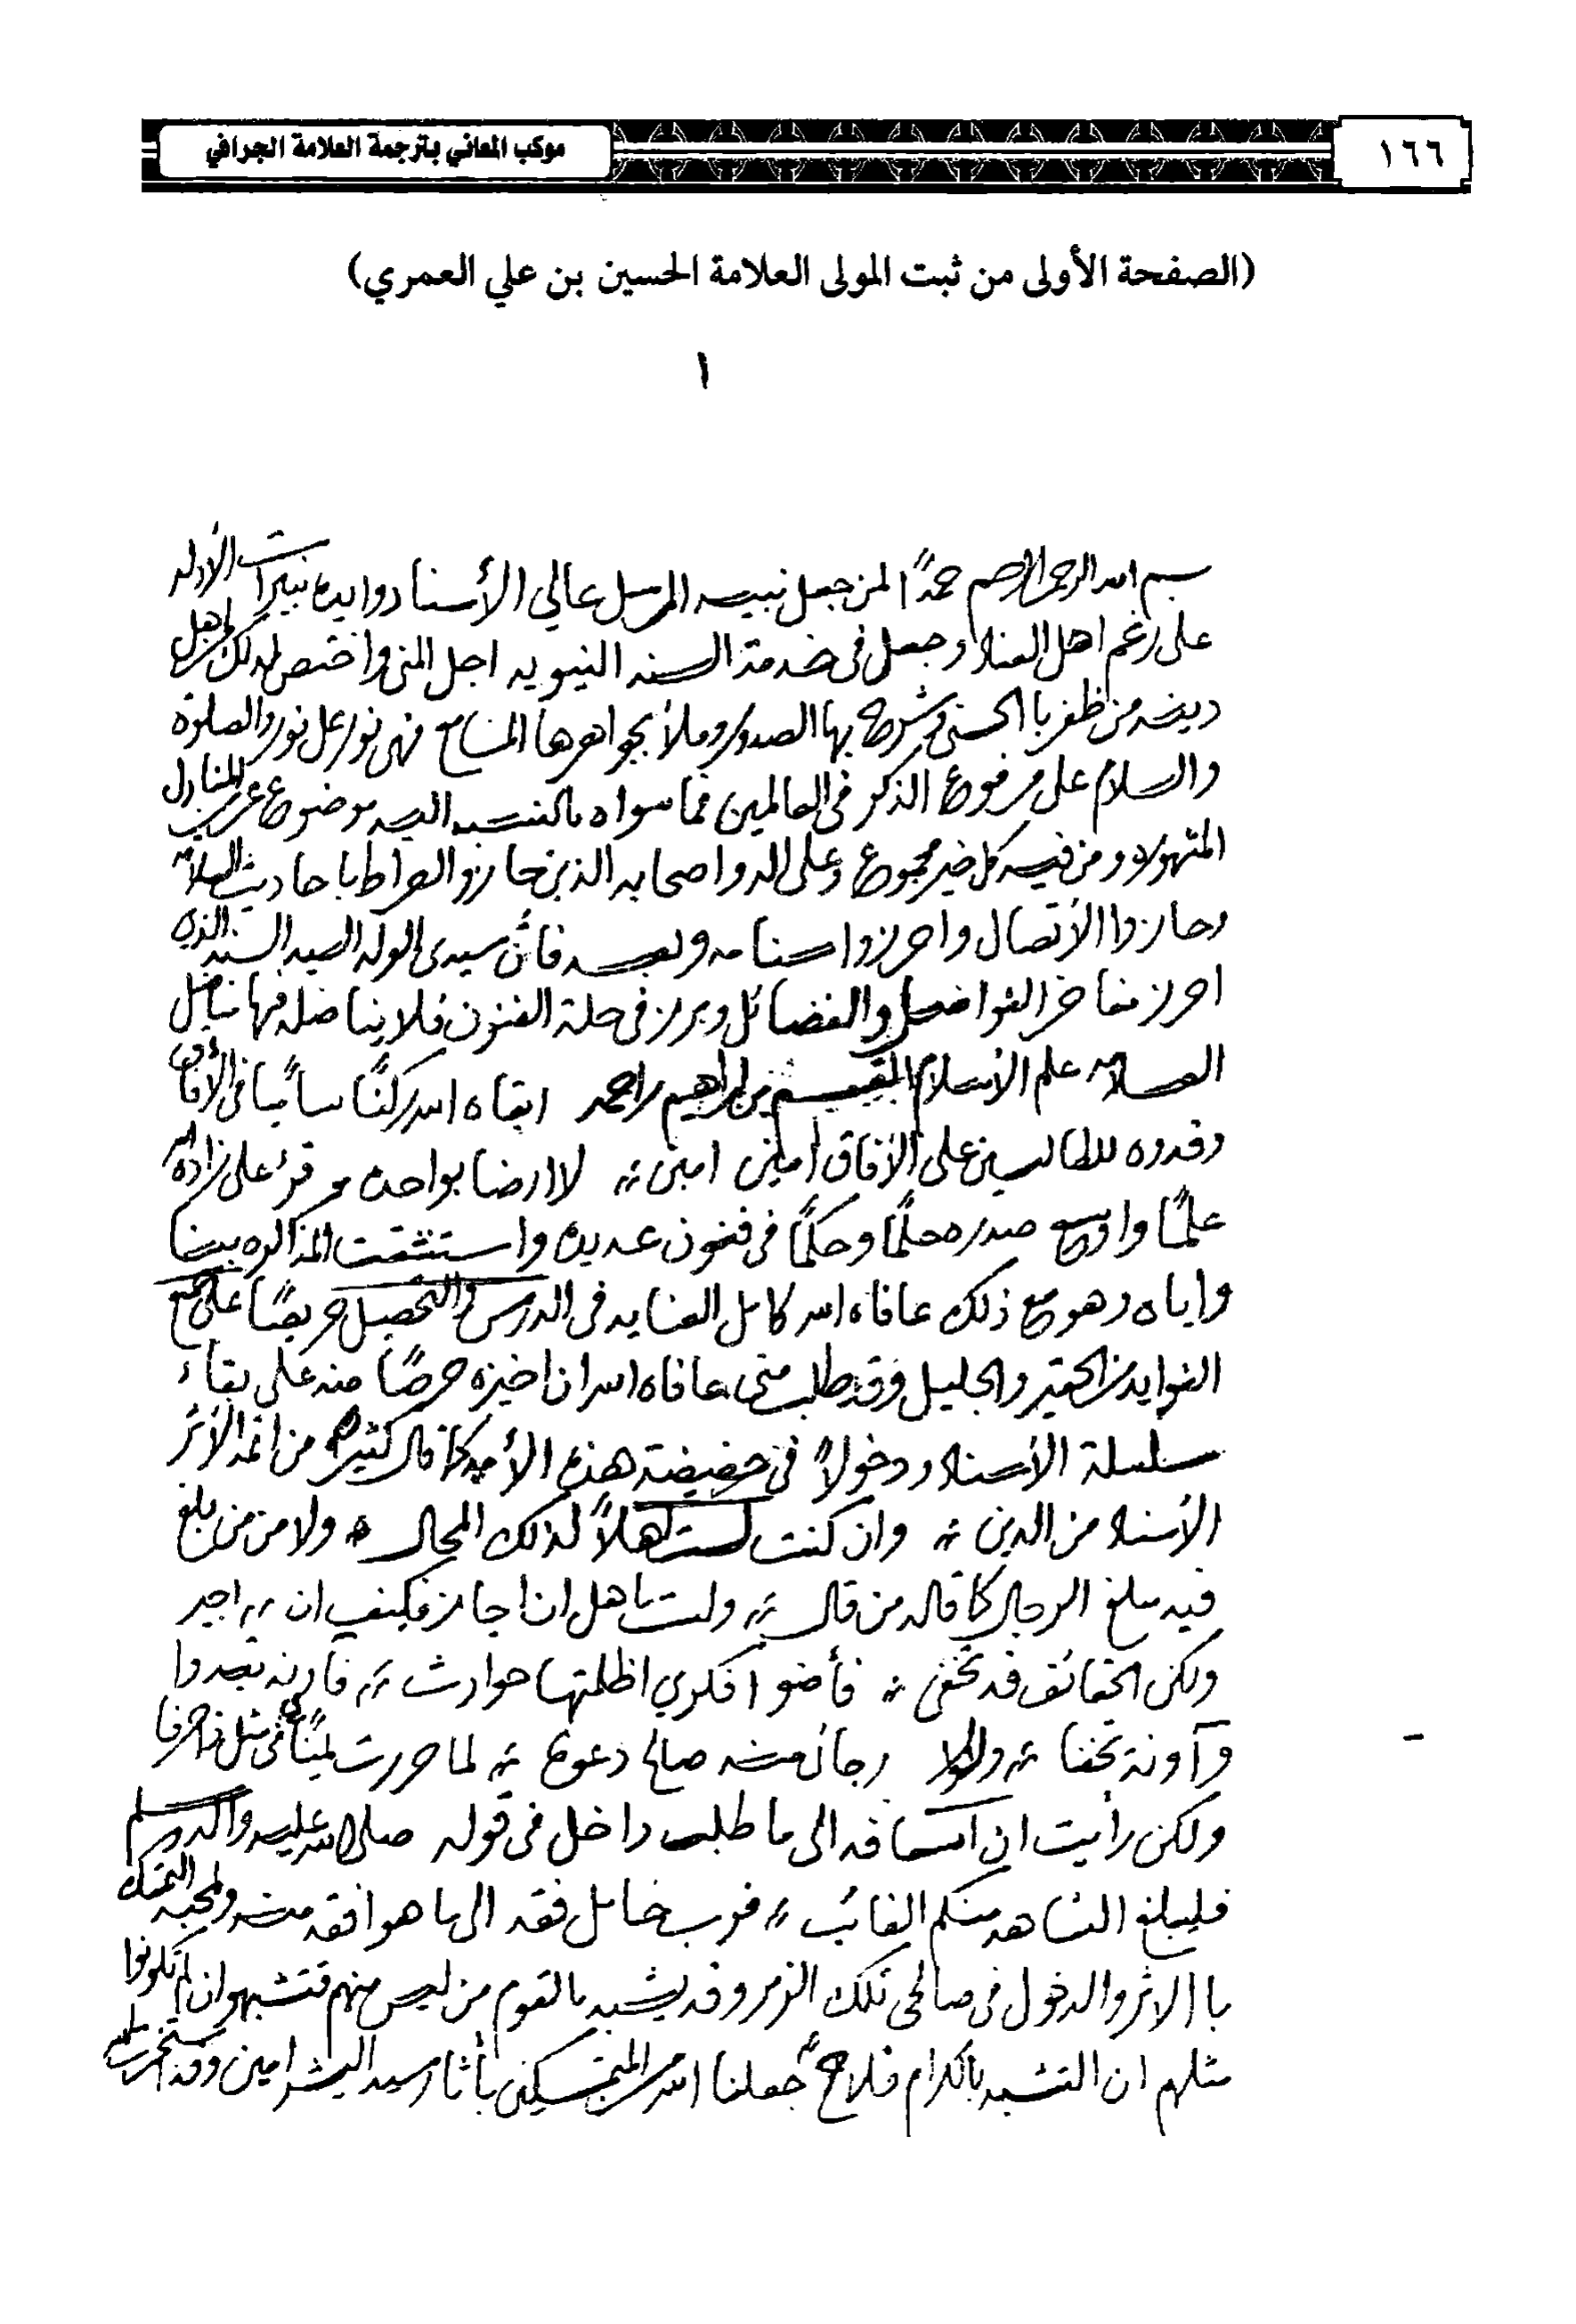 ١٦٦
موكب المعاني بترجمة العلامة الجرافي
(الصفحة الأولى من ثبت المولى العلامة الحسين بن علي العمري)
١
بسم الله الرحمن الرحيم حمداً لمن جعل نبيه المرسل عالي الأسناد وايده بنيرات الأدله
على رغم اهل العناد وجعل في خدمة السنه النبويه اجل المنن واختص لذلك اهل
دينه من ظفر با الحسنى وشرح بها الصدور وملأ بجواهرها المسامع فهى نور على نور والصلوة
والسلام على مرفوع الذكر في العالمين فما سواه بالنسبه اليه موضوع
ومن فيه كل خير مجموع وعلى اله واصحابه الذين حازوا
وحازوا الأتصال واحرزوا وبعد فأن سيدى الولد السيد السند الذي
احرز مفاخر الفواضل والفضائل وبرز في حلة الفنون فلا يناضله فيها مناضل
علم الأسلام القسيم بن ابراهيم بن احمد ابقاه الله ركناً سامياً في الأفاق
وقدوه للطالبين على الأفاق امين امين لا ارضا بواحدة قرء على زاده الله
علماً واوسع صدره حلماً وحكماً في فنون عديده واستثقت المذاكره بيننا
واياه وهو مع ذلك عافاه الله كامل العنايه في الدرس والتحصيل حريصاً على جمع
الفوايد من الحقير والجليل وقد طلب منى عافاه الله ان اجيزه حرصاً منه على بقاء
سلسلة الأسناد ودخولاً في هذه الأمه كما قال كثير من ائمة الأثر
الأسناد من الدين وان كنت لست اهلاً لذلك المجال ولا من من بلغ
فيه مبلغ الرجال كما قاله من قال ولست باهل ان اجاز فكيف ان اجيز
ولكن الحقائق قد تخفى فأضوا فكري اظلتها حوادث فآونة تبدوا
وآونة تخفا ولولا رجائى منه صالح دعوة لما حررت يمناى في مثل ذا حرفا
ولكن رأيت ان اسعافه الى ما طلب داخل في قوله صلى الله عليه واله وسلم
فليبلغ الشاهد منكم الغائب فرب حامل فقه الى ما هو افقه منه ولمحبة التمسك
با الاثر والدخول في صالحى تلك الزمر وقد يشبه بالقوم من ليس منهم فتشبهوا ان لم تكونوا
مثلهم ان التشبه بالكرام فلاح جعلنا الله من المتمسكين بأثار سيد البشر امين وقد استخرت الله